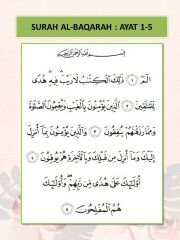 SURAH AL-BAQARAH : AYAT 1-5
بِسْمِ اللَّهِ الرَّحْمَٰنِ الرَّحِيمِ
الٓمٓ ۝١ ذَٰلِكَ الْكِتَٰبُ لَا رَيْبَ فِيهِ هُدًى
لِّلْمُتَّقِينَ ۝٢ الَّذِينَ يُؤْمِنُونَ بِالْغَيْبِ وَيُقِيمُونَ الصَّلَوٰةَ
وَمِمَّا رَزَقْنَٰهُمْ يُنفِقُونَ ۝٣ وَالَّذِينَ يُؤْمِنُونَ بِمَا أُنزِلَ
إِلَيْكَ وَمَا أُنزِلَ مِن قَبْلِكَ وَبِالْآخِرَةِ هُمْ يُوقِنُونَ ۝٤
أُو۟لَٰٓئِكَ عَلَىٰ هُدًى مِّن رَّبِّهِمْ وَأُو۟لَٰٓئِكَ
هُمُ الْمُفْلِحُونَ ۝٥